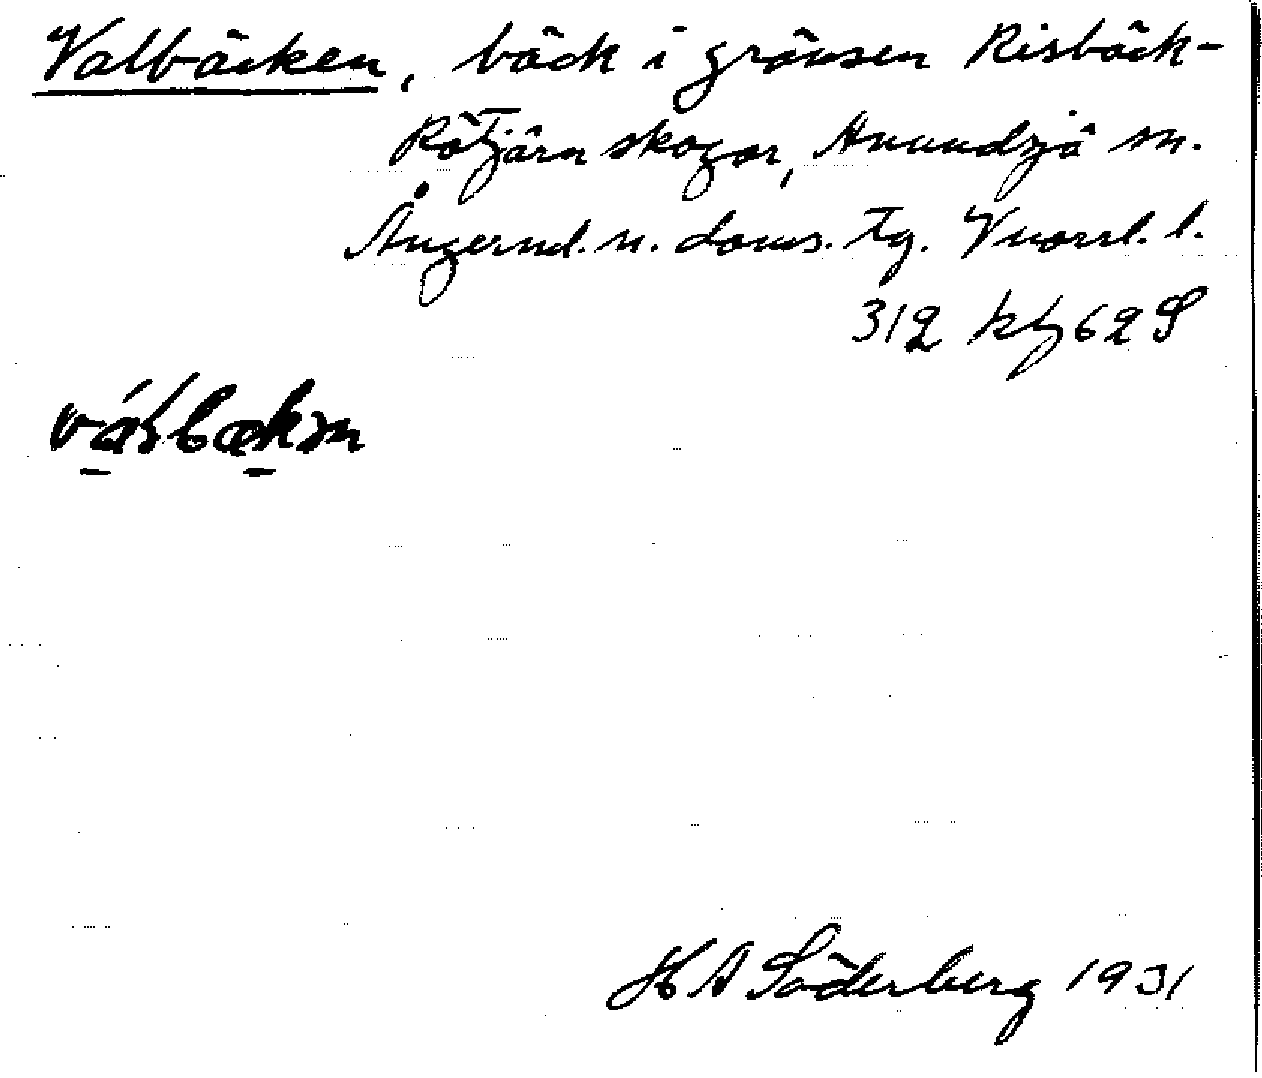 Valbäcken, bäck i gränsen Risbäck-
Rötjärn skogar, Anundsjö sn.
Ångerml. n. doms. Tg. Vnorrl. l.
312 kf 62 S
H A Söderberg 1931